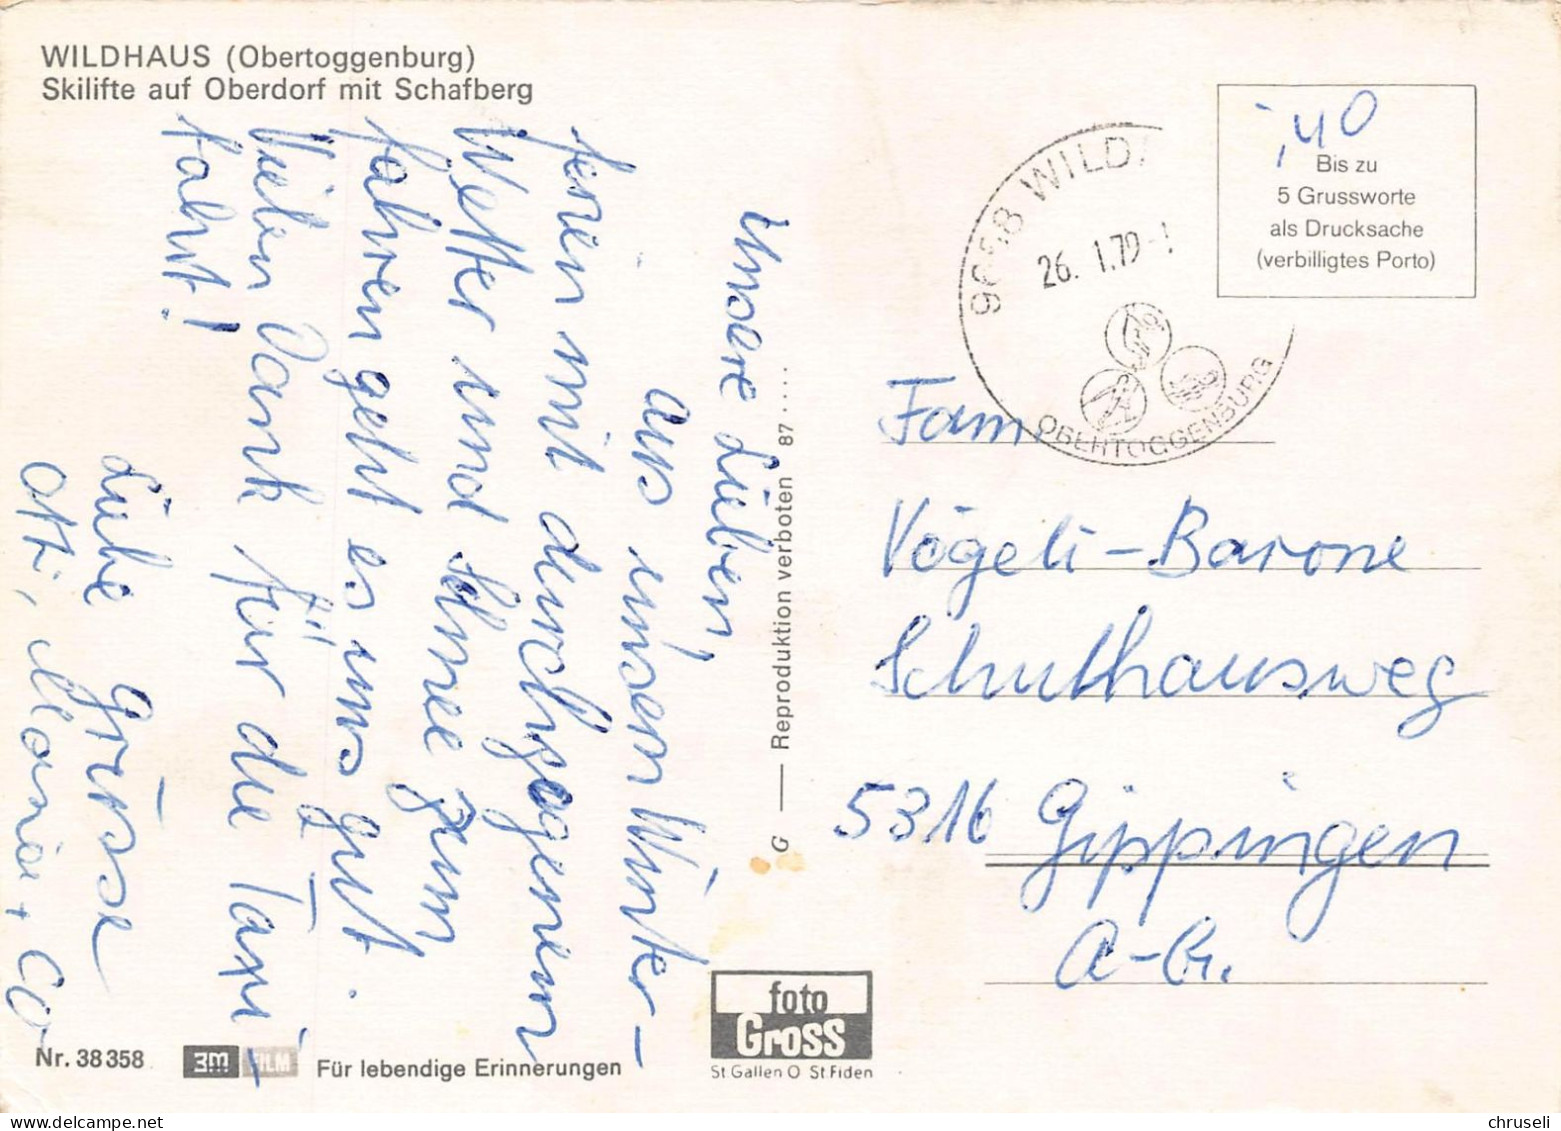 WILDHAUS (Obertoggenburg)
Skilifte auf Oberdorf mit Schafberg
Unsere Lieben,
aus unsen Winter-
ferien mit durchzogenem
Wetter und Schnee zum
fahren geht es uns gut.
Vielen Dank für die Taxi-
fahrt!
Liebe Grüsse
Otti, Maria + Co
G — Reproduktion verboten 87....
,40
Bis zu
5 Grussworte
als Drucksache
(verbilligtes Porto)
26. 1.79
OBERTOGGENBURG
Fam
Vögeli-Barone
Schulhausweg
5316 Gippingen
Nr. 38 358
3M FILM
Für lebendige Erinnerungen
foto
Gross
St Gallen O St Fiden
chruseli